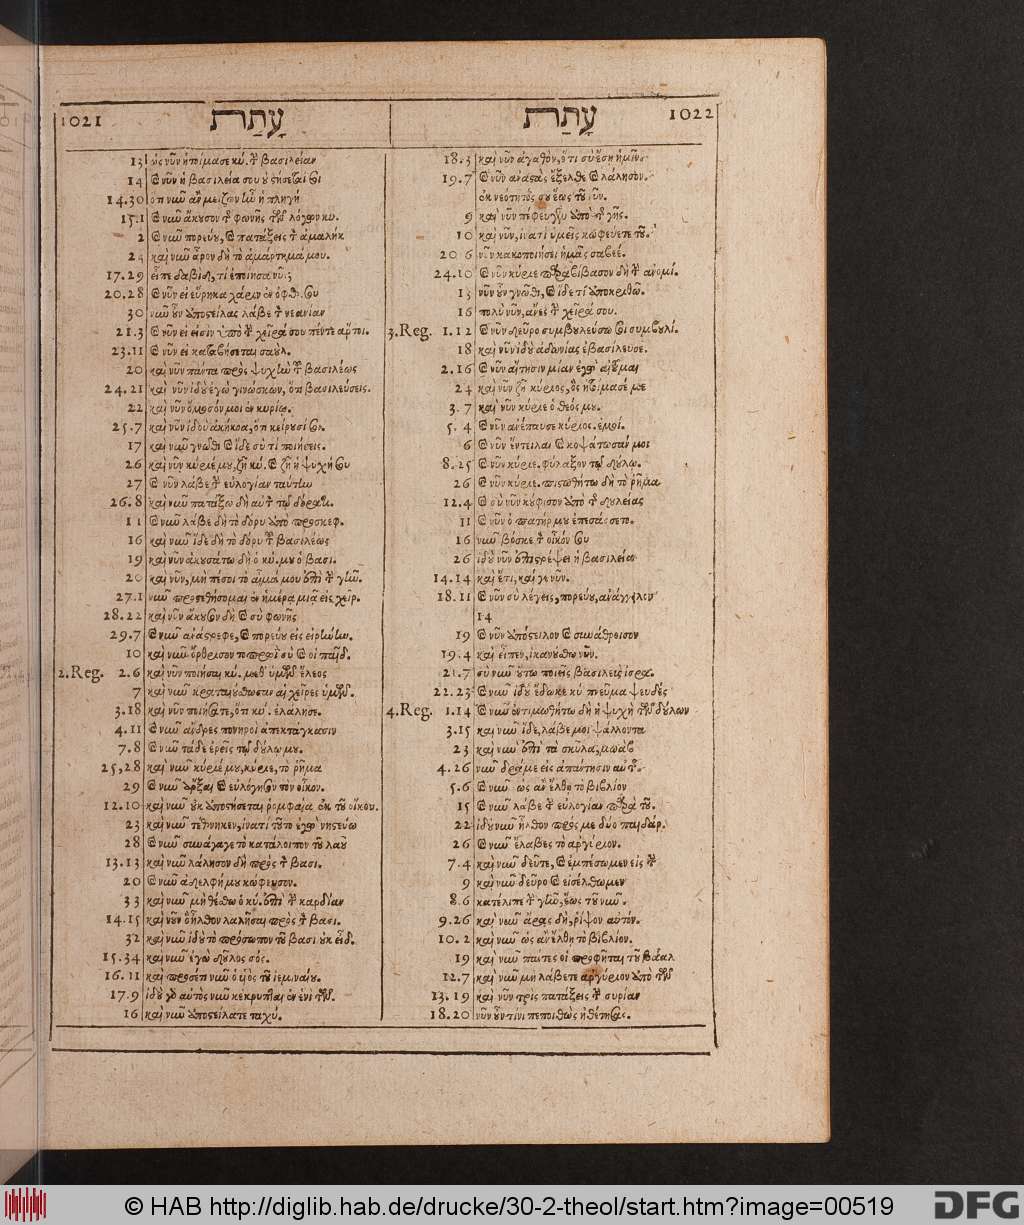 1021 עָתַרת עָתַרת 1022
13 ὡς νῦν ἡτοίμασε κύ. τ βασιλείαν
14 καὶ νῦν ἡ βασιλεία σου οὐ στήσεται σοι
14.30 ὅτι νῦν ἂν μείζων ἦν ἡ πληγή
15.1 καὶ νῦν ἄκουσον τ φωνῆς τῶν λόγων κυ.
2 καὶ νῦν πορεύου, καὶ πατάξεις τ ἀμαλήκ
25 καὶ νῦν ἆρον δὴ τὸ ἁμάρτημά μου.
17.29 εἶπε δαβὶδ, τί ἐποίησα νῦν;
20.28 καὶ νῦν εἰ εὕρηκα χάριν ἐν ὀφθ. σου
30 νῦν οὖν ὑποστείλας λάβε τ νεανίαν
21.3 καὶ νῦν εἰ εἰσὶν ὑπὸ τ χεῖρά σου πέντε ἄρτοι.
23.11 καὶ νῦν εἰ καταβήσεται σαούλ.
20 καὶ νῦν πάντα πρὸς ψυχὴν τοῦ βασιλέως
24.21 καὶ νῦν ἰδοὺ ἐγὼ γινώσκων, ὅτι βασιλεύσεις.
22 καὶ νῦν ὄμοσόν μοι ἐν κυρίῳ.
25.7 καὶ νῦν ἰδοὺ ἀκήκοα, ὅτι κείρουσί σοι.
17 καὶ νῦν γνῶθι καὶ ἴδε σὺ τί ποιήσεις.
26 καὶ νῦν κύριέ μου, ζῇ κύ. καὶ ζῇ ἡ ψυχή σου
27 καὶ νῦν λάβε τ εὐλογίαν ταύτην
26.8 καὶ νῦν πατάξω δὴ αὐτ τῷ δόρατι.
11 καὶ νῦν λάβε δὴ τὸ δόρυ ἀπὸ προσκεφ.
16 καὶ νῦν ἴδε δὴ τὸ δόρυ τοῦ βασιλέως
19 καὶ νῦν ἀκουσάτω δὴ ὁ κύ. μου ὁ βασι.
20 καὶ νῦν, μὴ πέσοι τὸ αἷμά μου ἐπὶ τ γῆν.
27.1 νῦν προστεθήσομαι ἐν ἡμέρᾳ μιᾷ εἰς χεῖρ.
28.22 καὶ νῦν ἄκουσον δὴ καὶ σὺ φωνῆς
29.7 καὶ νῦν ἀνάστρεφε, καὶ πορεύου εἰς εἰρήνην.
10 καὶ νῦν ὄρθρισον τοπρωῒ σὺ καὶ οἱ παῖδ.
2.Reg. 2.6 καὶ νῦν ποιῆσαι κύ. μεθ᾽ ὑμῶν ἔλεος
7 καὶ νῦν κραταιούσθωσαν αἱ χεῖρες ὑμῶν.
3.18 καὶ νῦν ποιήσατε, ὅτι κύ. ἐλάλησε.
4.11 καὶ νῦν ἄνδρες πονηροὶ ἀπεκτάγκασιν
7.8 καὶ νῦν τάδε ἐρεῖς τῷ δούλῳ μου.
25,28 καὶ νῦν κύριέ μου, κύριε, τὸ ῥῆμα
29 καὶ νῦν ἄρξαι καὶ εὐλόγησον τὸν οἶκον.
12.10 καὶ νῦν οὐκ ἀποστήσεται ῥομφαία ἐκ τοῦ οἴκου.
23 καὶ νῦν τέθνηκεν, ἱνατί τοῦτο ἐγὼ νηστεύω
28 καὶ νῦν συνάγαγε τὸ κατάλοιπον τοῦ λαοῦ
13.13 καὶ νῦν λάλησον δὴ πρὸς τ βασι.
20 καὶ νῦν ἀδελφή μου κώφευσον.
33 καὶ νῦν μὴ θέσθω ὁ κύ. ἐπὶ τ καρδίαν
14.15 καὶ νῦν ὃ ἦλθον λαλῆσαι πρὸς τ βασι.
32 καὶ νῦν ἰδοὺ τὸ πρόσωπον τοῦ βασι. οὐκ εἶδ.
15.34 καὶ νῦν ἐγὼ δοῦλος σός.
16.11 καὶ προσέτι νῦν ὁ υἱὸς τοῦ ἰεμιναίου.
17.9 ἰδοὺ γὰρ αὐτὸς νῦν κέκρυπται ἐν ἑνὶ τῶν.
16 καὶ νῦν ἀποστείλατε ταχύ.
18.3 καὶ νῦν ἀγαθὸν, ὅτι σὺ ἔσῃ ἡμῖν.
19.7 καὶ νῦν ἀναστὰς ἔξελθε καὶ λάλησον.
ἐκ νεότητός σου ἕως τοῦ νῦν.
9 καὶ νῦν πέφευγεν ἀπὸ τ γῆς.
10 καὶ νῦν, ἱνατί ὑμεῖς κωφεύετε τοῦ.
20 6 νῦν κακοποιήσει ἡμᾶς σαβεέ.
24.10 καὶ νῦν κύριε παραβίβασον δὴ τ ἀνομί.
13 νῦν οὖν γνῶθι, καὶ ἴδε τί ἀποκριθῶ.
16 πολὺ νῦν, ἄνες τ χεῖρά σου.
3.Reg. 1.12 καὶ νῦν δεῦρο συμβουλεύσω σοι συμβουλί.
18 καὶ νῦν ἰδοὺ ἀδωνίας ἐβασίλευσε.
2.16 καὶ νῦν αἴτησιν μίαν ἐγὼ αἰτοῦμαι
24 καὶ νῦν ζῇ κύριος, ὃς ἡτοίμασέ με
3.7 καὶ νῦν κύριε ὁ θεός μου.
5.4 καὶ νῦν ἀνέπαυσε κύριος ἐμοί.
6 καὶ νῦν ἔντειλαι καὶ κοψάτωσάν μοι
8.25 καὶ νῦν κύριε φύλαξον τῷ δούλῳ.
26 καὶ νῦν κύριε πιστωθήτω δὴ τὸ ῥῆμα
12.4 καὶ σὺ νῦν κούφισον ἀπὸ τ δουλείας
11 καὶ νῦν ὁ πατήρ μου ἐπεσάσσετο.
16 νῦν βόσκε τ οἶκόν σου
26 ἰδοὺ νῦν ἐπιστρέψει ἡ βασιλεία
14.14 καὶ ἔτι, καί γε νῦν.
18.11 καὶ νῦν σὺ λέγεις, πορεύου, ἀνάγγελλε
14
19 καὶ νῦν ἀπόστειλον καὶ συνάθροισον
19.4 καὶ εἶπεν, ἱκανούσθω νῦν.
21.7 σὺ νῦν οὕτω ποιεῖς βασιλεὺς ἰσρα.
22.23 καὶ νῦν ἰδοὺ ἔδωκε κύ πνεῦμα ψευδὲς
4.Reg. 1.14 καὶ νῦν ἐντιμωθήτω δὴ ἡ ψυχὴ τῶν δούλων
3.15 καὶ νῦν ἴδε, λάβε μοι ψάλλοντα
23 καὶ νῦν ἐπὶ τὰ σκῦλα, μωὰβ
4.26 νῦν δράμε εἰς ἀπάντησιν αὐτ.
5.6 καὶ νῦν ὡς ἂν ἔλθῃ τὸ βιβλίον
15 καὶ νῦν λάβε τ εὐλογίαν παρὰ τοῦ.
22 ἰδοὺ νῦν ἦλθον πρός με δύο παιδάρ.
26 καὶ νῦν ἔλαβες τὸ ἀργύριον.
7.4 καὶ νῦν δεῦτε, καὶ ἐμπέσωμεν εἰς τ
9 καὶ νῦν δεῦρο καὶ εἰσέλθωμεν
8.6 κατέλιπε τ γῆν, ἕως τοῦ νῦν.
9.26 καὶ νῦν ἄρας δὴ, ῥίψον αὐτόν.
10.2 καὶ νῦν ὡς ἂν ἔλθῃ τὸ βιβλίον.
19 καὶ νῦν πάντες οἱ προφῆται τοῦ βάαλ
12.7 καὶ νῦν μὴ λάβετε ἀργύριον ἀπὸ τῶν
13.19 καὶ νῦν τρὶς πατάξεις τ συρίαν
18.20 νῦν οὖν τίνι πεποιθὼς ἠθέτησας.
© HAB http://diglib.hab.de/drucke/30-2-theol/start.htm?image=00519
DFG